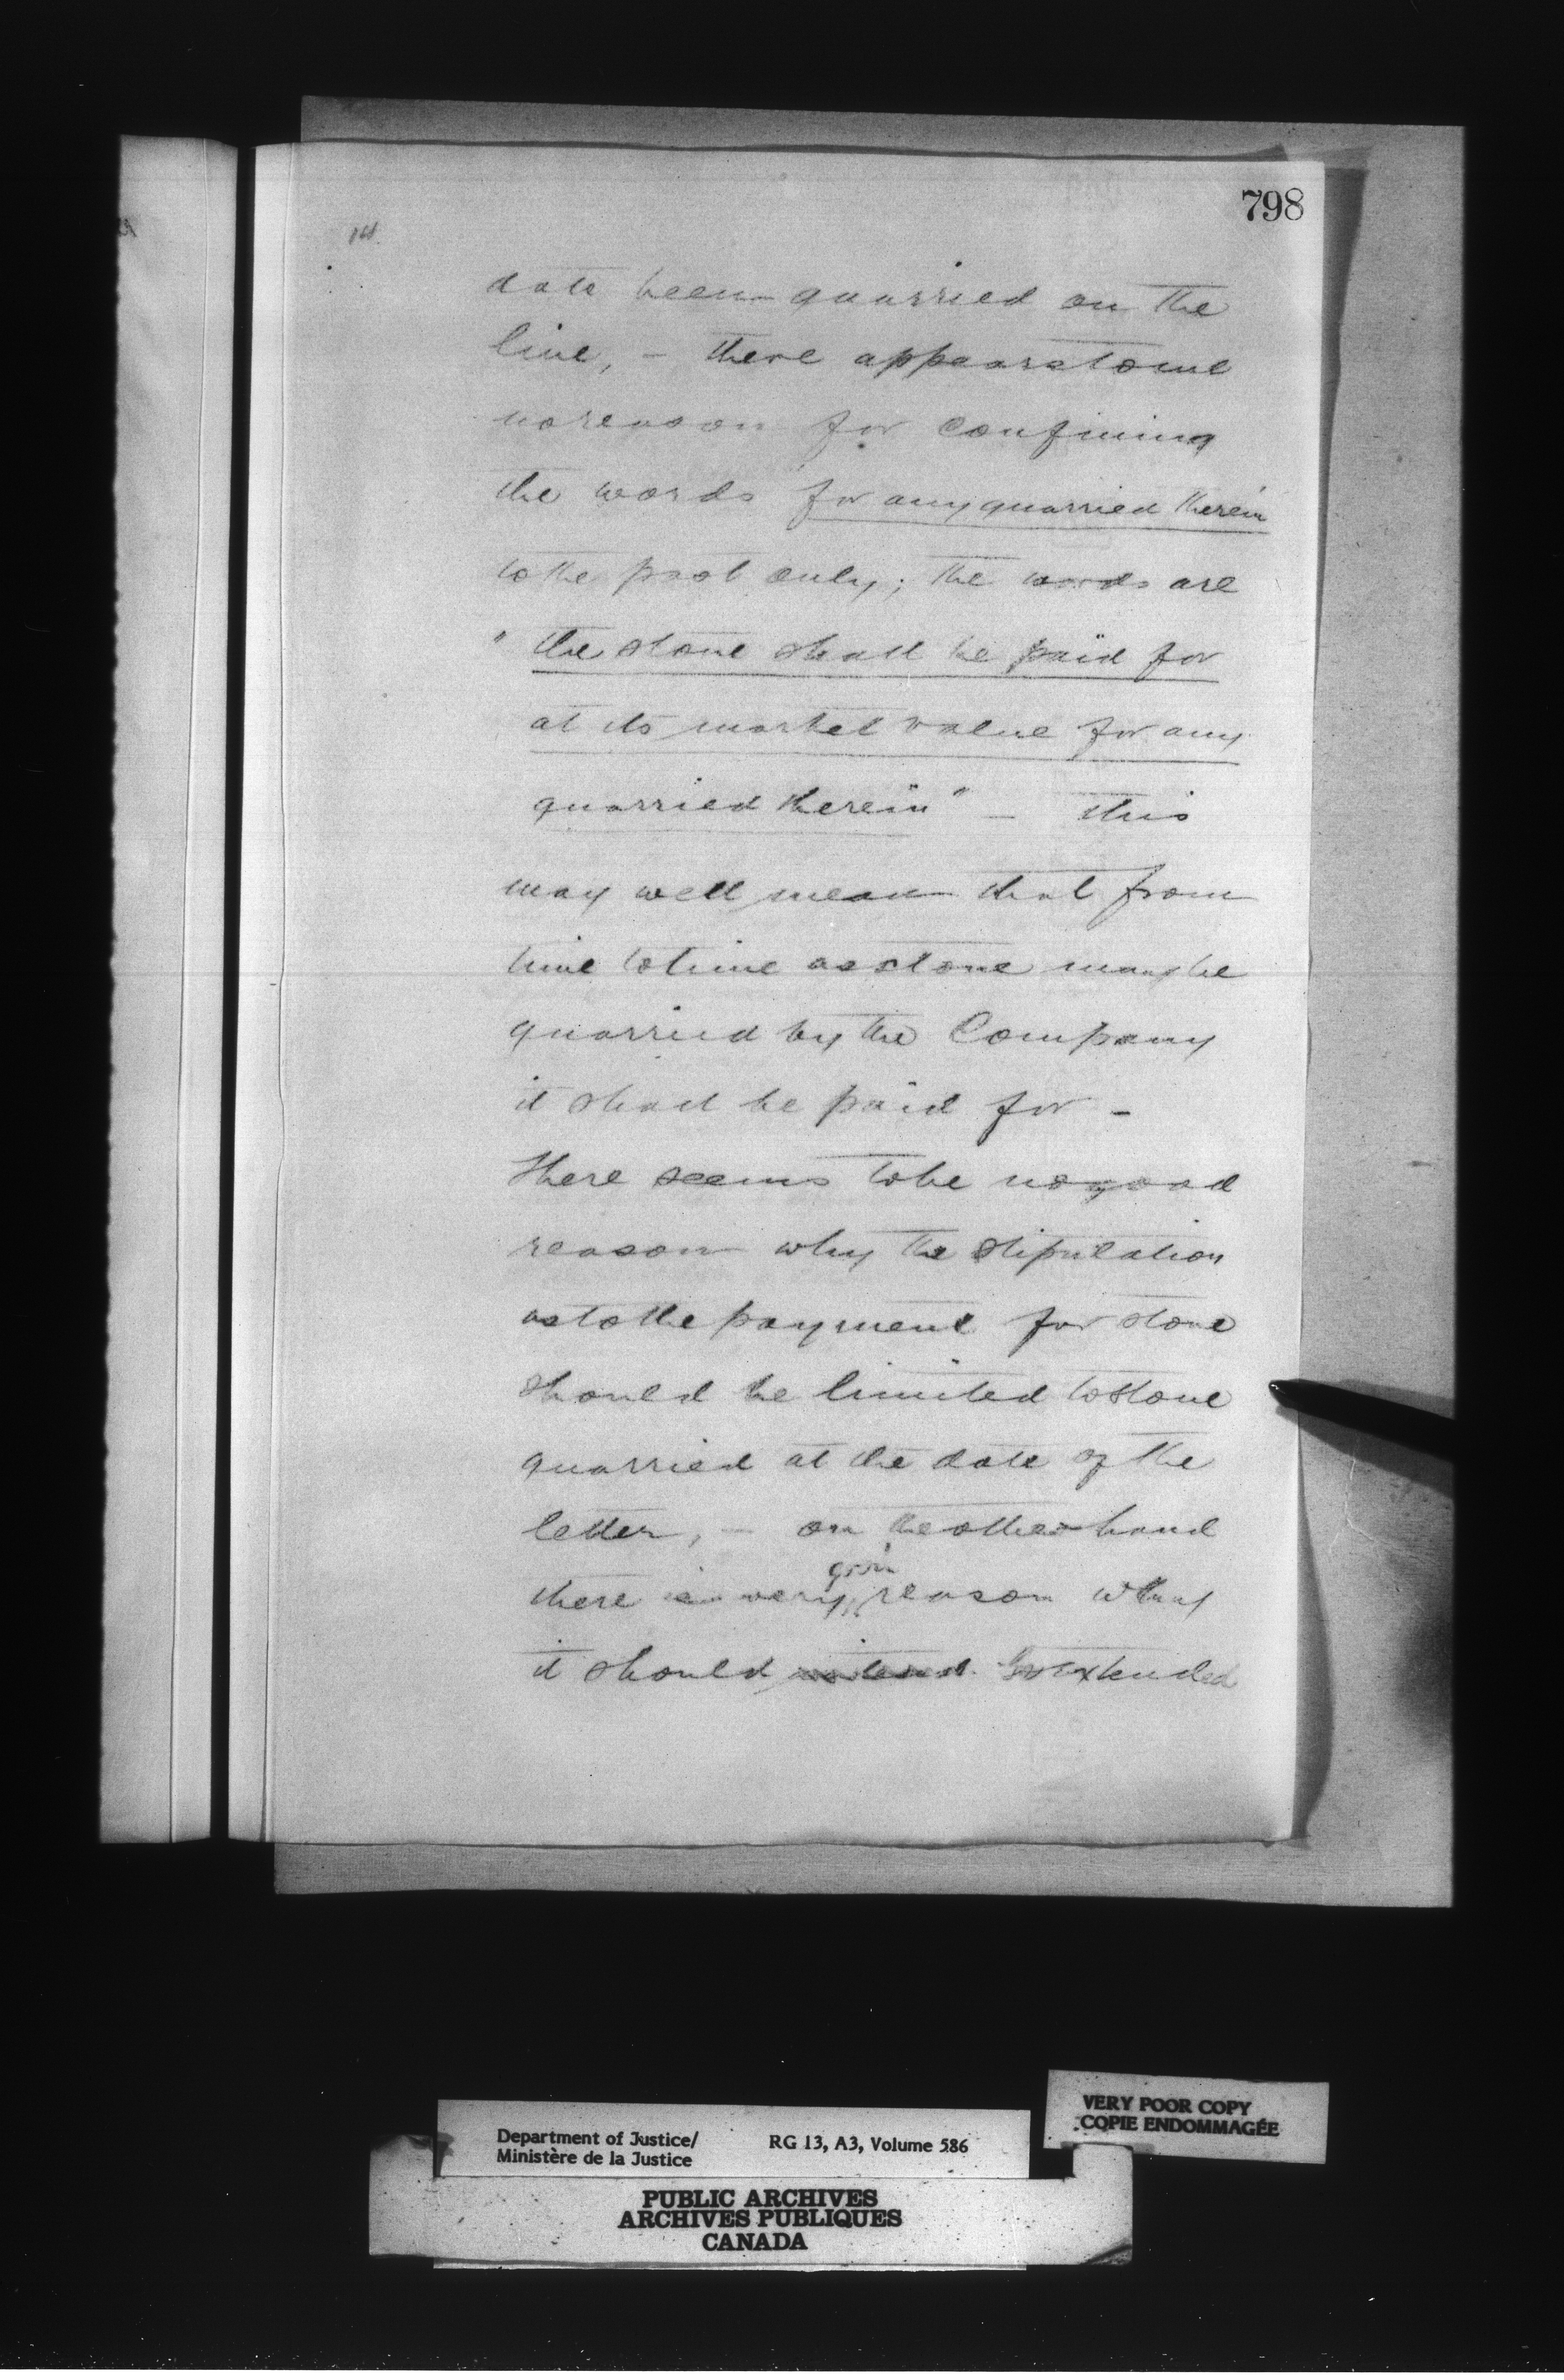 798
date been quarried on the
line, – there appears to me
no reason for confining
the words for any quarried therein
to the past only; the words are
" the stone shall be paid for
at its market value for any
quarried therein" – this
may well mean that from
time to time as stone may be
quarried by the Company
it shall be paid for –
There seems to be no good
reason why the stipulation
as to the payment for stone
should be limited to stone
quarried at the date of the
letter, – on the other hand
good
there is very reason why
it should extended
VERY POOR COPY
COPIE ENDOMMAGÉE
Department of Justice/ RG 13, A3, Volume 586
Ministère de la Justice
PUBLIC ARCHIVES
ARCHIVES PUBLIQUES
CANADA